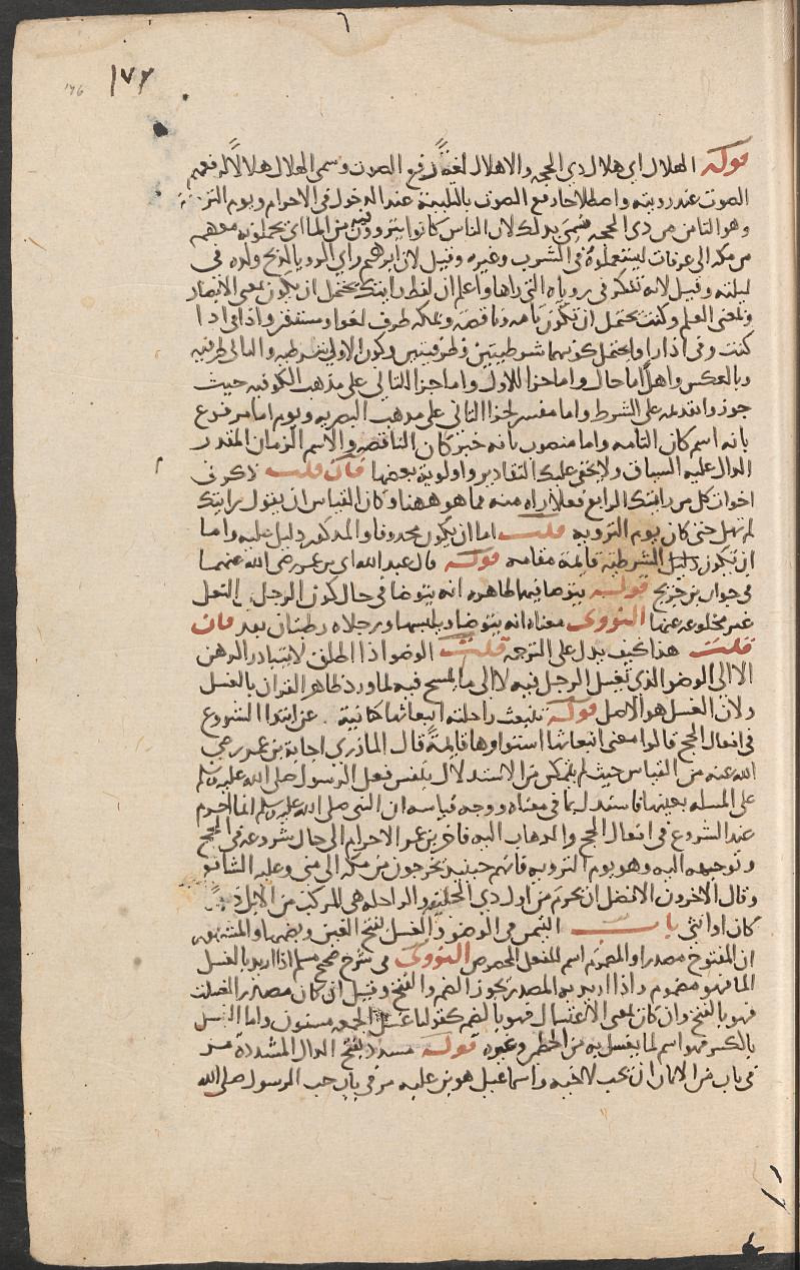 ١٧٦
176
قوله الهلال اي هلال ذي الحجه والاهلال لغةً رفع الصوت وسمى الهلال هلالًا لرفعهم
الصوت عند رويته واصطلاحا رفع الصوت بالتلبية عند الدخول في الاحرام ويوم التروية
وهو الثامن من ذي الحجه سُمِّيَ بذلك لان الناس كانوا يتروون فيه من الماء اي يحملونه معهم
من مكه الى عرفات ليستعملوهُ في الشرب وغيره وقيل لان ابرهيم راي الرويا بذبح ولده في
ليلته وقيل لانه تفكر في روياه التي راها واعلم ان لفظ رايتك يحتمل ان يكون بمعنى الابصار
وبمعنى العلم وكنت يحتمل ان تكون تامه وناقصه وبمكه ظرف لغوا ومستقر واذا في اذا
كنت وفي اذا راوا يحتمل كونهما شرطيتين وظرفيتين وكون الاولى شرطيه والثاني ظرفيه
وبالعكس واهلَّ اما حال واما جزا للاول واما جزا للثاني على مذهب الكوفيه حيث
جوزوا تقدمه على الشرط واما مفسر لجزا الثاني على مذهب البصريه ويوم اما مرفوع
بانه اسم كان التامه واما منصوب بانه خبر كان الناقصه والاسم الزمان المقدر
الدال عليه السياق ولا يخفى عليك التقادير واولوية بعضها فان قلت ذكر في
اخوات كل من رايتك الرابع فعلا راه منه مما هو ههنا وكان القياس ان يقول رايتك
لم تهل حتى كان يوم الترويه قلت اما ان يكون محذوفا والمذكور دليل عليه واما
ان تكون دليل الشرطية قايمة مقامه قوله قال عبد الله اي بن عمر رضي الله عنهما
في جواب بن جريج قوله يتوضا فيها ظاهره انه يتوضا في حال كون الرجل في النعل
غير مخلوعه عنها النووى معناه انه يتوضا ويلبسها ورجلاه رطبتان بعد فان
قلت هذا كيف يدل على الترجمه قلت الوضو اذا اطلق لا يتبادر الذهن
الا الى الوضو الذي يغسل الرجل فيه لا الى ما يمسح فيه لما ورد ظاهر القران بالغسل
ولان الغسل هو الاصل قوله تنبعث راحلته انبعاثها كناية عن ابتداء الشروع
في افعال الحج قالوا معنى انبعاثها استواوها قايمةً قال المازري اجابة بن عمر رضي
الله عنه من القياس حيث لم يتمكن من الاستدلال بنفس فعل الرسول صلى الله عليه وسلم
على المسله بعينها فاستدل بما في معناه ووجه قياسه ان النبي صلى الله عليه وسلم انما احرم
عند الشروع في افعال الحج والذهاب اليه فاخر بن عمر الاحرام الى حال شروعه في الحج
وتوجهه اليه وهو يوم الترويه فانهم حينيذ يخرجون من مكه الى منى وعليه الشافعي
وقال الاخرون الافضل ان يحرم من اول ذي الحجة والراحله هي المركب من الابل ذكرا
كان او انثى باب التيمن في الوضو والغسل بفتح الغين وبضمها والمشهور
ان المفتوح مصدر او المضموم اسم للفعل المخصوص النووى في شرح صحيح مسلم اذا اريد بالغسل
الما فهو مضموم واذا اريد به المصدر يجوز الضم والفتح وقيل ان كان مصدر الغسلت
فهو بالفتح وان كان بمعنى الاغتسال فهو بالضم كقولنا غسل الجمعه مسنون واما الغسل
بالكسر فهو اسم لما يغسل به من الخطمي وغيره قوله مسدد بفتح الدال المشدده مر
في باب من الايمان ان يحب لاخيه واسماعيل هو بن عليه مر في باب حب الرسول صلى الله